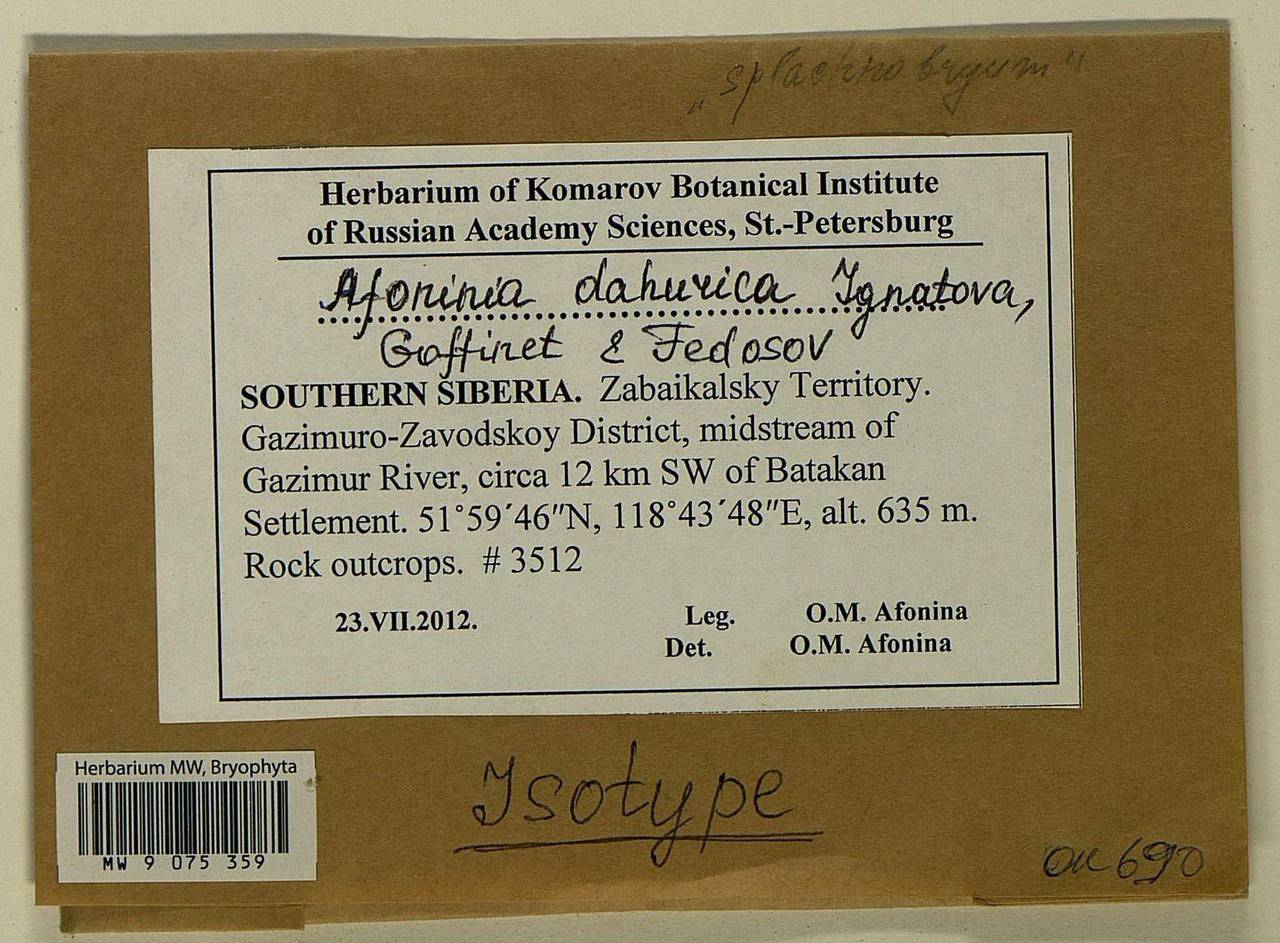 „splachnobryum"
Herbarium of Komarov Botanical Institute
of Russian Academy Sciences, St.-Petersburg
Afoninia dahurica Ignatova,
Goffinet & Fedosov
SOUTHERN SIBERIA. Zabaikalsky Territory.
Gazimuro-Zavodskoy District, midstream of
Gazimur River, circa 12 km SW of Batakan
Settlement. 51°59´46″N, 118°43´48″E, alt. 635 m.
Rock outcrops. # 3512
23.VII.2012. Leg. O.M. Afonina
Det. O.M. Afonina
Isotype
Herbarium MW, Bryophyta
MW 9 075 359
ок 690